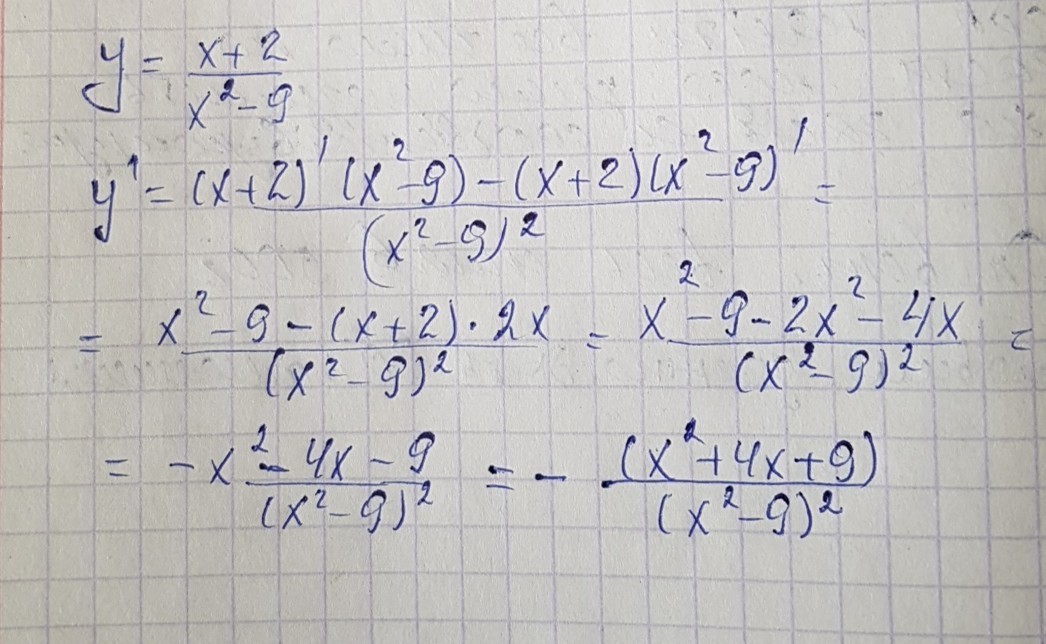 y = (x+2)/(x²-9)
y' = ((x+2)'(x²-9)-(x+2)(x²-9)')/(x²-9)² =
= (x²-9-(x+2)·2x)/(x²-9)² = (x²-9-2x²-4x)/(x²-9)² =
= (-x²-4x-9)/(x²-9)² = - (x²+4x+9)/(x²-9)²